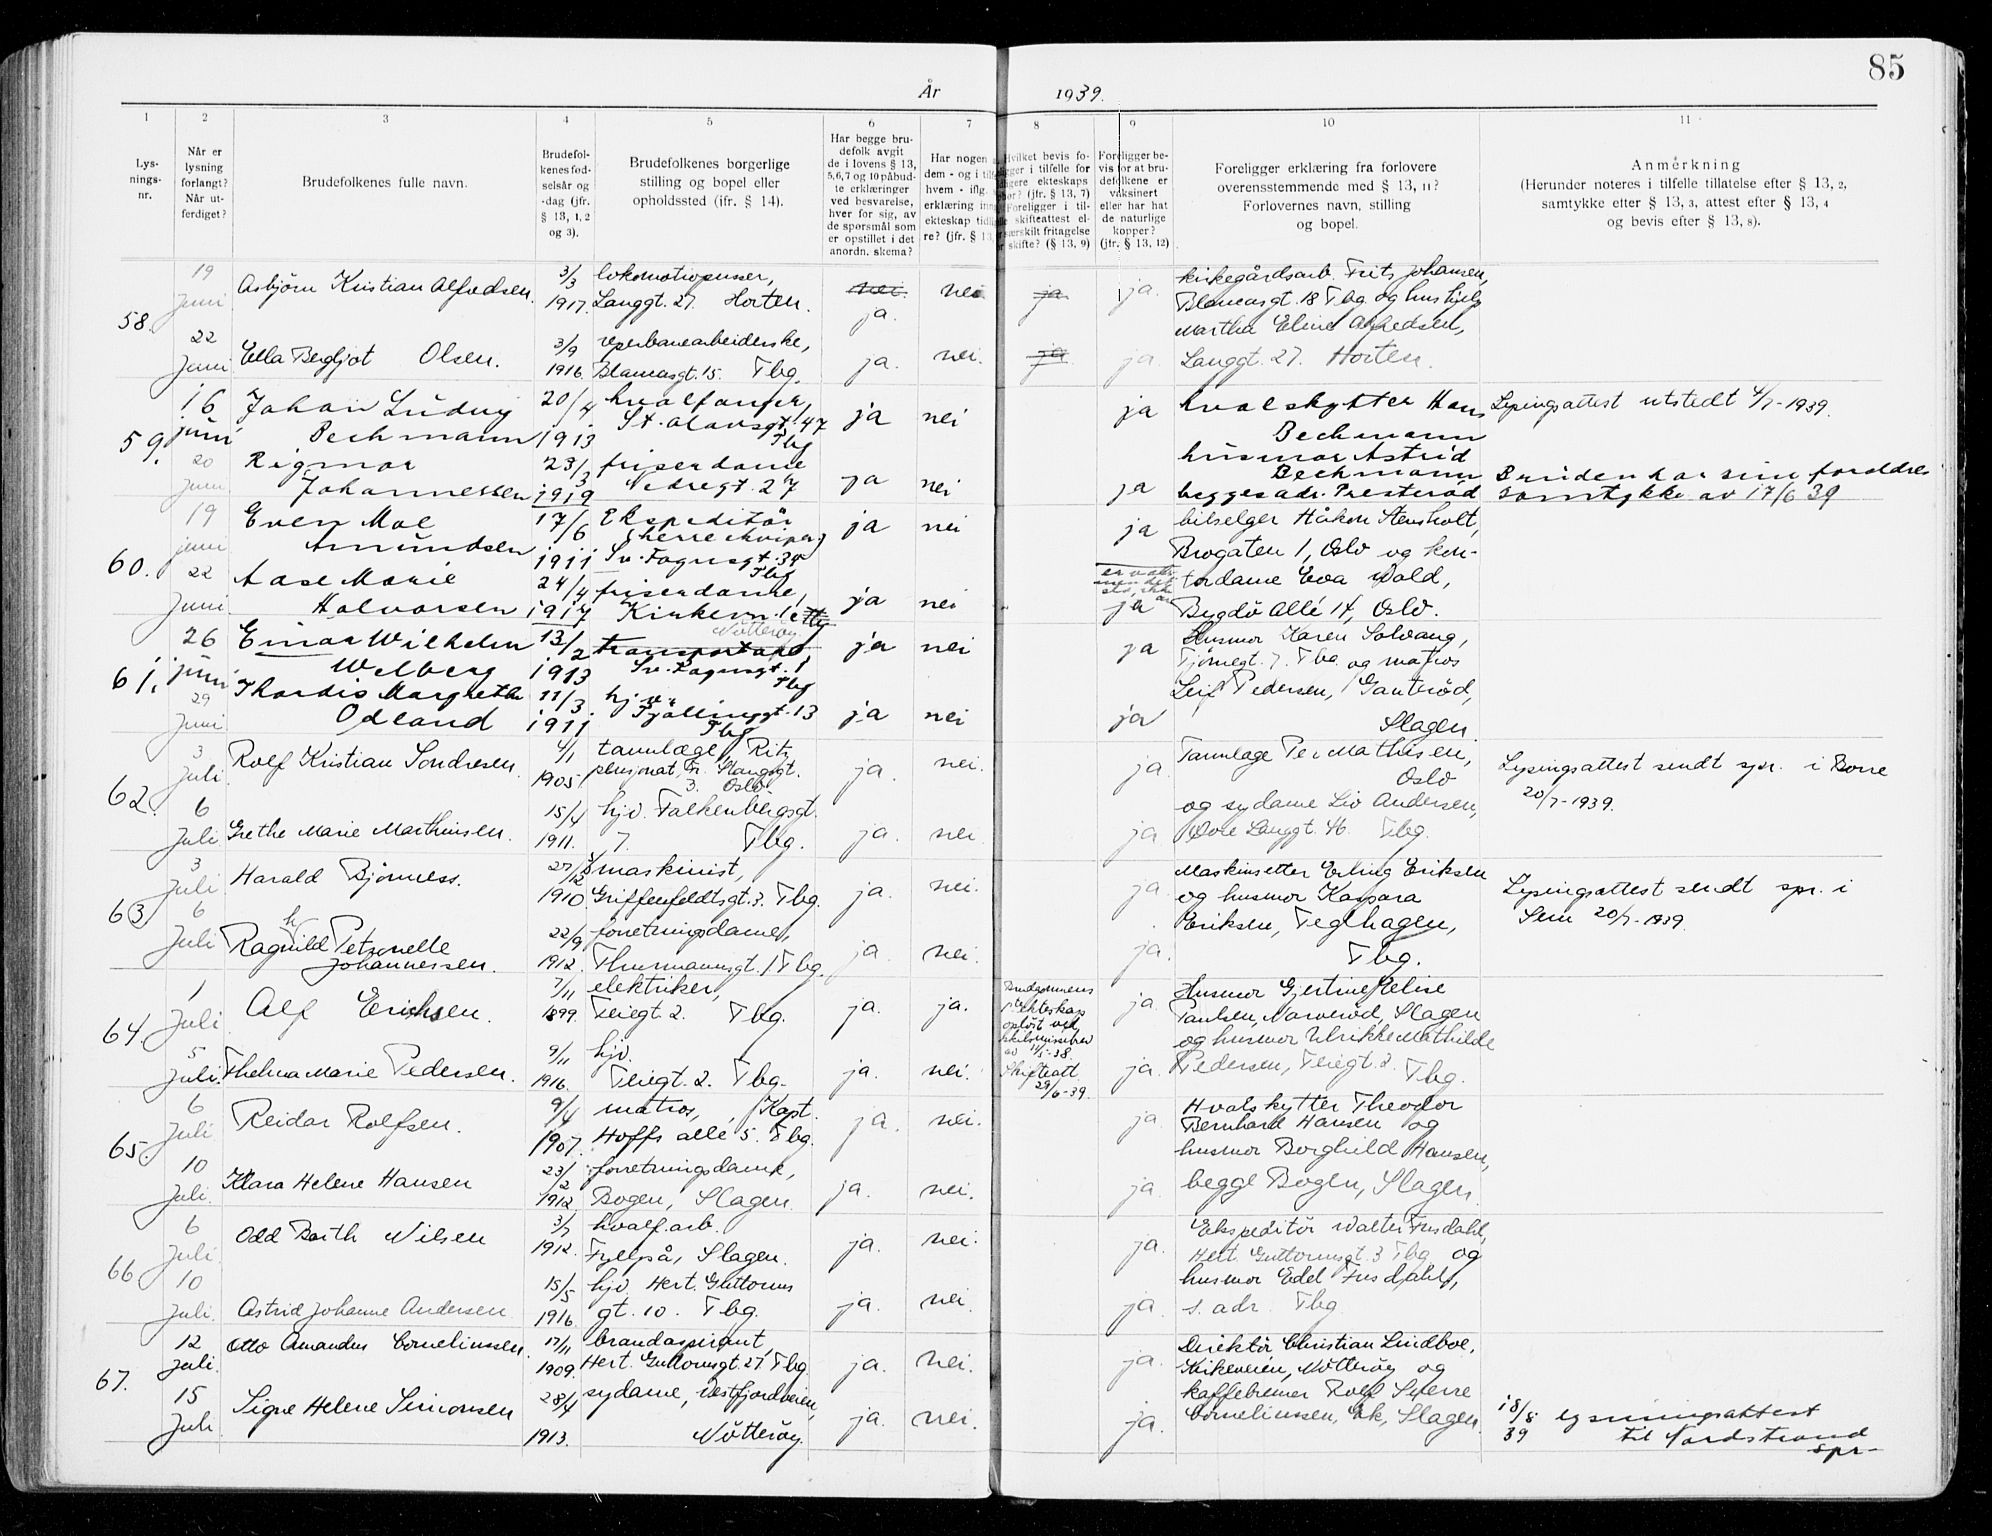 85
År 1939.
1 2 3 4 5 6 7 8 9 10 11
Lysnings-nr.
Når er lysning forlangt? Når utferdiget?
Brudefolkenes fulle navn.
Brudefolkenes fødselsår og -dag (jfr. § 13, 1, 2 og 3).
Brudefolkenes borgerlige stilling og bopel eller opholdssted (ifr. § 14).
Har begge brudefolk avgit de i lovens § 13, 5, 6, 7 og 10 påbudte erklæringer ved besvarelse, hver for sig, av de spørsmål som er opstillet i det anordn. skema?
Foreligger bevis for at brudefolkene er vaksinert eller har hat de naturlige kopper? (jfr. § 13, 12)
Foreligger erklæring fra forlovere overensstemmende med § 13, 11? Forlovernes navn, stilling og bopel.
Anmerkning
(Herunder noteres i tilfelle tillatelse efter § 13, 2, samtykke efter § 13, 3, attest efter § 13, 4 og bevis efter § 13, 8).
58.
19 Juni Asbjörn Kristian Alfredsen. 3/3 1917. lokomotivpusser, Langgt. 27. Horten. nei. ja. nei ja ja.
kirkegårdsarb. Fritz Johansen, 18 Tbg og hushjelp Martha Eline Alfredsen, Langgt. 27. Horten.
22 Juni Ella Bergljot Olsen. 3/9 1916. reperbanearbeiderske, 15. Tbg. ja. nei. ja ja
59.
16 juni Johan Ludvig Bechmann 20/4 1913 hvalfanger, St. Olavsgt. 47 Tbg ja nei ja
hvalskytter Hans Bechmann husmor Astrid Bechmann begges adr. Presteröd
Lysingsattest utstedt 4/7-1939.
20 Juni Rigmor Johannessen 23/3 1919 friserdame Nedregt. 27 ja nei ja
Bruden har sine foreldres samtykke av 17/6 39
60.
19 juni Even Moe Amundsen 17/6 1911 Ekspeditör (herreekvipering) Sv. Foynsgt. 39 Tbg ja nei ja
bilselger Håkon Stensholt, Brogaten 1, Oslo og kontordame Eva Wold, Bygdö Allé 14, Oslo.
22 Juni Aase Marie Halvorsen 24/4 1917 friserdame, Nötteröy ja nei ja
61.
26 juni Einar Wilhelm Welberg 13/2 1913 Sv. Foynsgt. 1 Tbg ja nei ja
Husmor Karen Solvang, Tjömegt. 7. Tbg. og matros Leif Pedersen, Ganteröd, Slagen.
29 Juni Thordis Margrethe Odland 11/3 1911 hjv. Fjöllinggt. 13 Tbg ja nei ja
62.
3 Juli Rolf Kristian Sondresen. 4/1 1905. tannlæge, Ritz pensjonat, Fr. Stangsgt. 3. Oslo ja. nei. ja
Tannlæge Per Mathisen, Oslo og sydame Liv Andersen, Övre Langgt. 46 Tbg.
Lysingsattest sendt spr. i Borre 20/7-1939.
6 Juli Grethe Marie Marthinsen. 15/4 1911. hjv. Falkenbergsgt. 7. Tbg. ja. nei ja
63.
3 Juli Harald Björness. 27/12 1910 maskinist, Griffenfeldtsgt. 3. Tbg. ja. nei. ja.
Maskinsetter Erling Eriksen og husmor Kaspara Eriksen, Teglhagen, Tbg.
Lysingsattest sendt spr. i Sem 20/7-1939.
6 Juli Ragnhild Petronelle Johannessen. 22/9 1912. forretningsdame, Thurmannsgt. 1 Tbg. ja. nei. ja.
64.
1 Juli Alf Erichsen. 7/11 1899. elektriker, Teiegt. 2. Tbg. ja. ja.
Brudgommens 1ste ekteskap oplöst ved skilsmissebev. av 11/5-38. Skifteatt. 29/6-39. ja.
Husmor Gjertine Elise Paulsen, Narveröd, Slagen og husmor Ulrikke Mathilde Pedersen, Teiegt. 2. Tbg.
5 Juli. Thelma Marie Pedersen. 9/11 1916. hjv. Teiegt. 2. Tbg. ja. nei. ja.
65.
6 Juli Reidar Rolfsen. 9/4 1907. matros, Kapt. Hoffs allé 5. Tbg. ja. nei. ja.
Hvalskytter Theodor Bernhard Hansen og husmor Borghild Hansen, begge Bogen, Slagen.
10 Juli. Klara Helene Hansen 23/2 1912. forretningsdame, Bogen, Slagen. ja. nei. ja.
66.
6 Juli Odd Barth Nilsen 3/7 1912. hvalf.arb. Fyllpå, Slagen. ja. nei. ja.
Ekspeditör Walter Fusdahl, Hert. Guttormsgt. 3 Tbg og husmor Edel Fusdahl, s. adr. Tbg.
10 Juli. Astrid Johanne Andersen 15/5 1916. hjv. Hert. Guttormsgt. 10. Tbg. ja. nei. ja.
67.
12 juli. Otto Amandus Cornelinssen. 17/11 1909. brandaspirant Hert. Guttormsgt. 27 Tbg. ja. nei. ja.
Direktör Christian Lindboe, Kirkeveien, Nötteröy og kaffebrenner Rolf Sverre Cornelinssen, Ek, Slagen.
15 Juli Signe Helene Simonsen 28/4 1913. sydame, Vestfjordveien, Nötteröy. ja. nei. ja.
18/8 39 lysningsattest til Nordstrand spr-